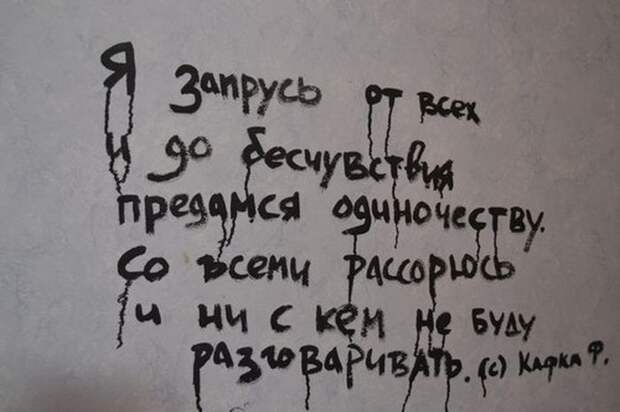 Я запрусь от всех
и до бесчувствия
предамся одиночеству.
Со всеми рассорюсь
и ни с кем не буду
разговаривать. (с) Кафка Ф.